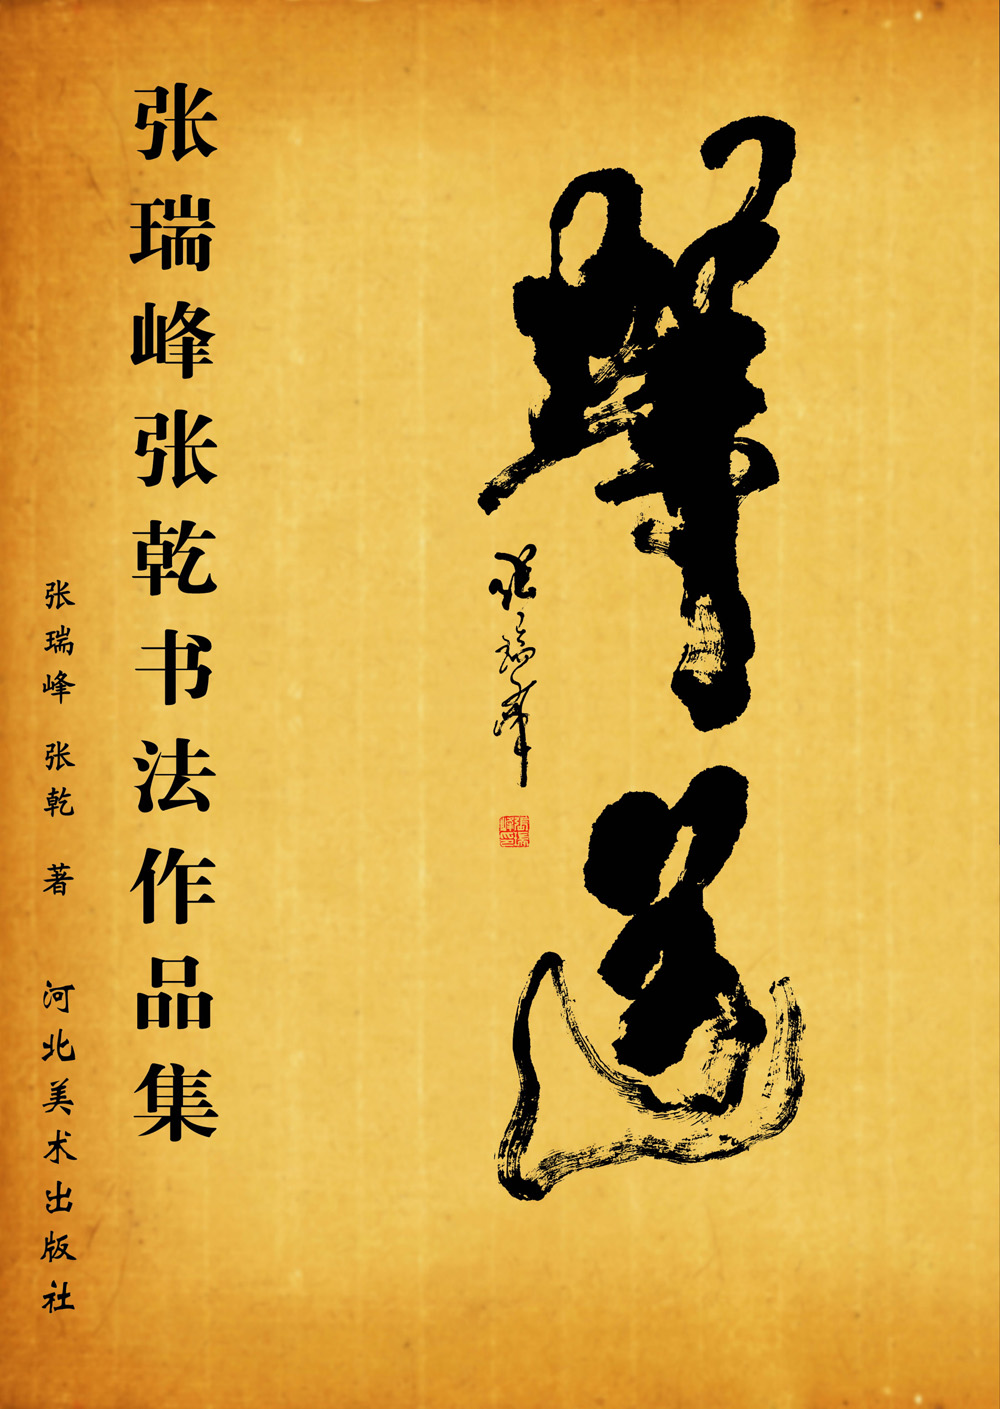 张瑞峰
張瑞峰印
张瑞峰张乾书法作品集
张瑞峰 张乾 著 河北美术出版社